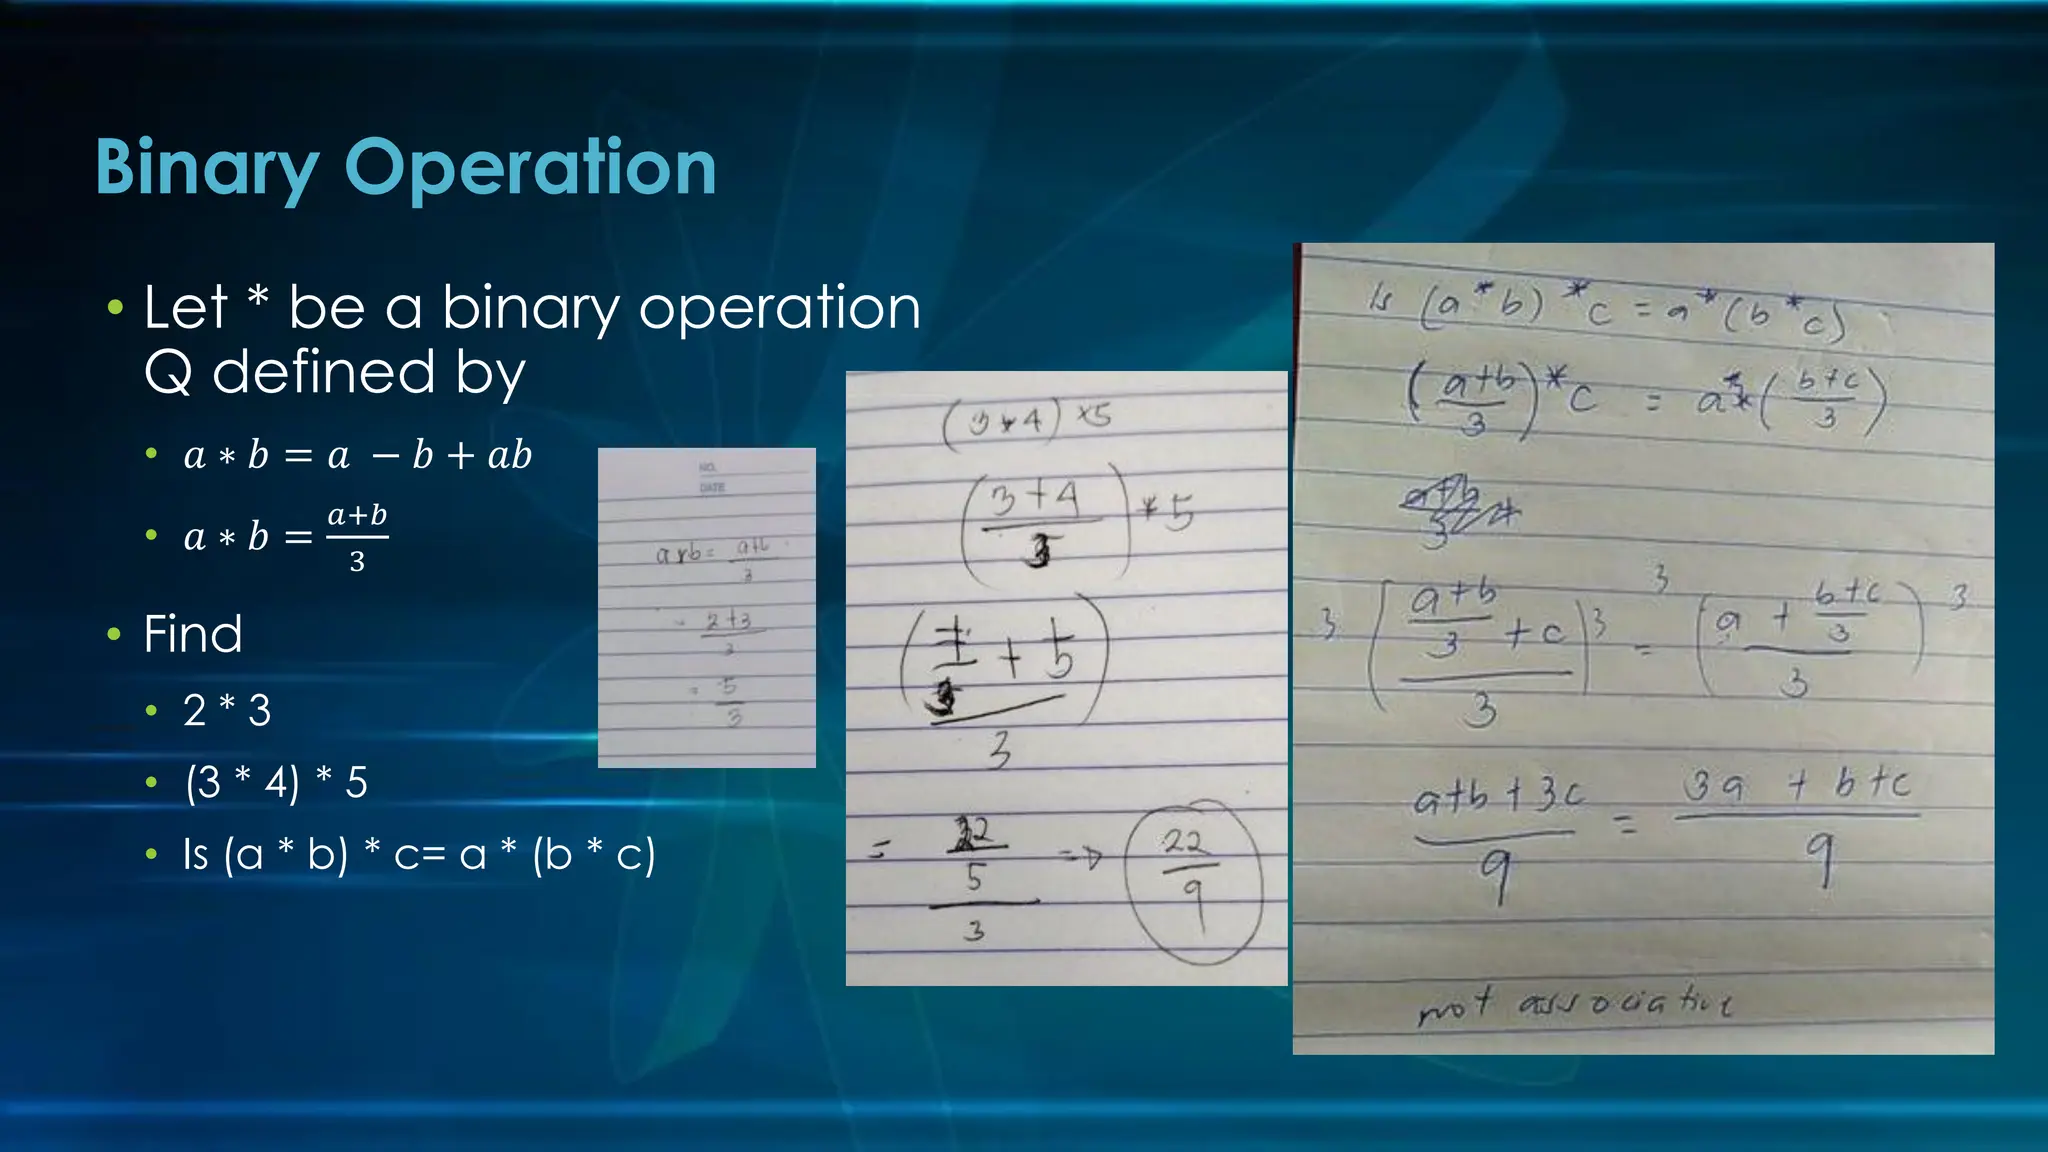 Binary Operation
• Let * be a binary operation
Q defined by
• a ∗ b = a − b + ab
• a ∗ b = a+b/3
• Find
• 2 * 3
• (3 * 4) * 5
• Is (a * b) * c= a * (b * c)
NO.
DATE
a*b = a+b/3
= 2+3/3
= 5/3
(3*4) *5
(3+4/3) * 5
(7/3 + 5)/3
= 22/5/3 => 22/9
Is (a*b) *c = a*(b*c)
(a+b/3)*c = a*(b+c/3)
3 (a+b/3 + c/3) 3 = 3 (a + b+c/3/3) 3
a+b+3c/9 = 3a + b+c/9
not associative